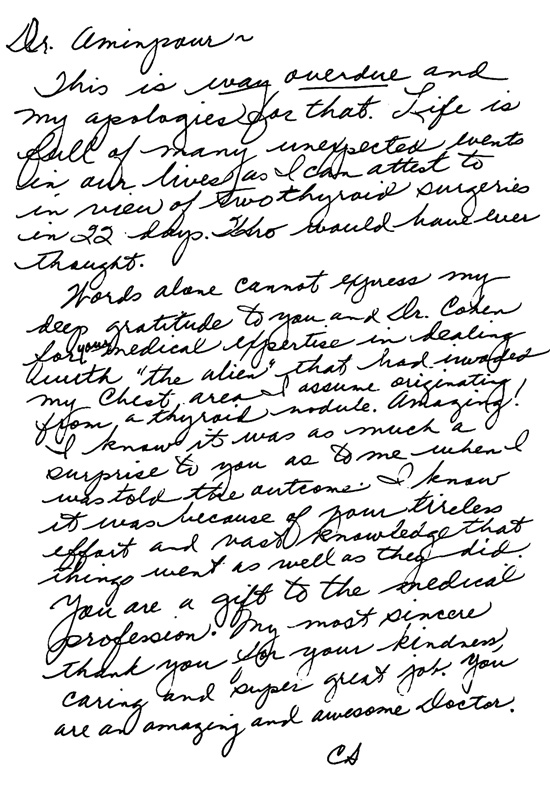 Dr. Aminpour ~
This is way overdue and
my apologies for that. Life is
full of many unexpected events
in our lives as I can attest to
in view of two thyroid surgeries
in 22 days. Who would have ever
thought.
Words alone cannot express my
deep gratitude to you and Dr. Cohen
for your medical expertise in dealing
with "the alien" that had invaded
my chest area I assume originating
from a thyroid nodule. Amazing!
I know it was as much a
surprise to you as to me when I
was told the outcome. I know
it was because of your tireless
effort and vast knowledge that
things went as well as they did.
You are a gift to the medical
profession. My most sincere
thank you for your kindness,
caring and super great job. You
are an amazing and awesome Doctor.
CS